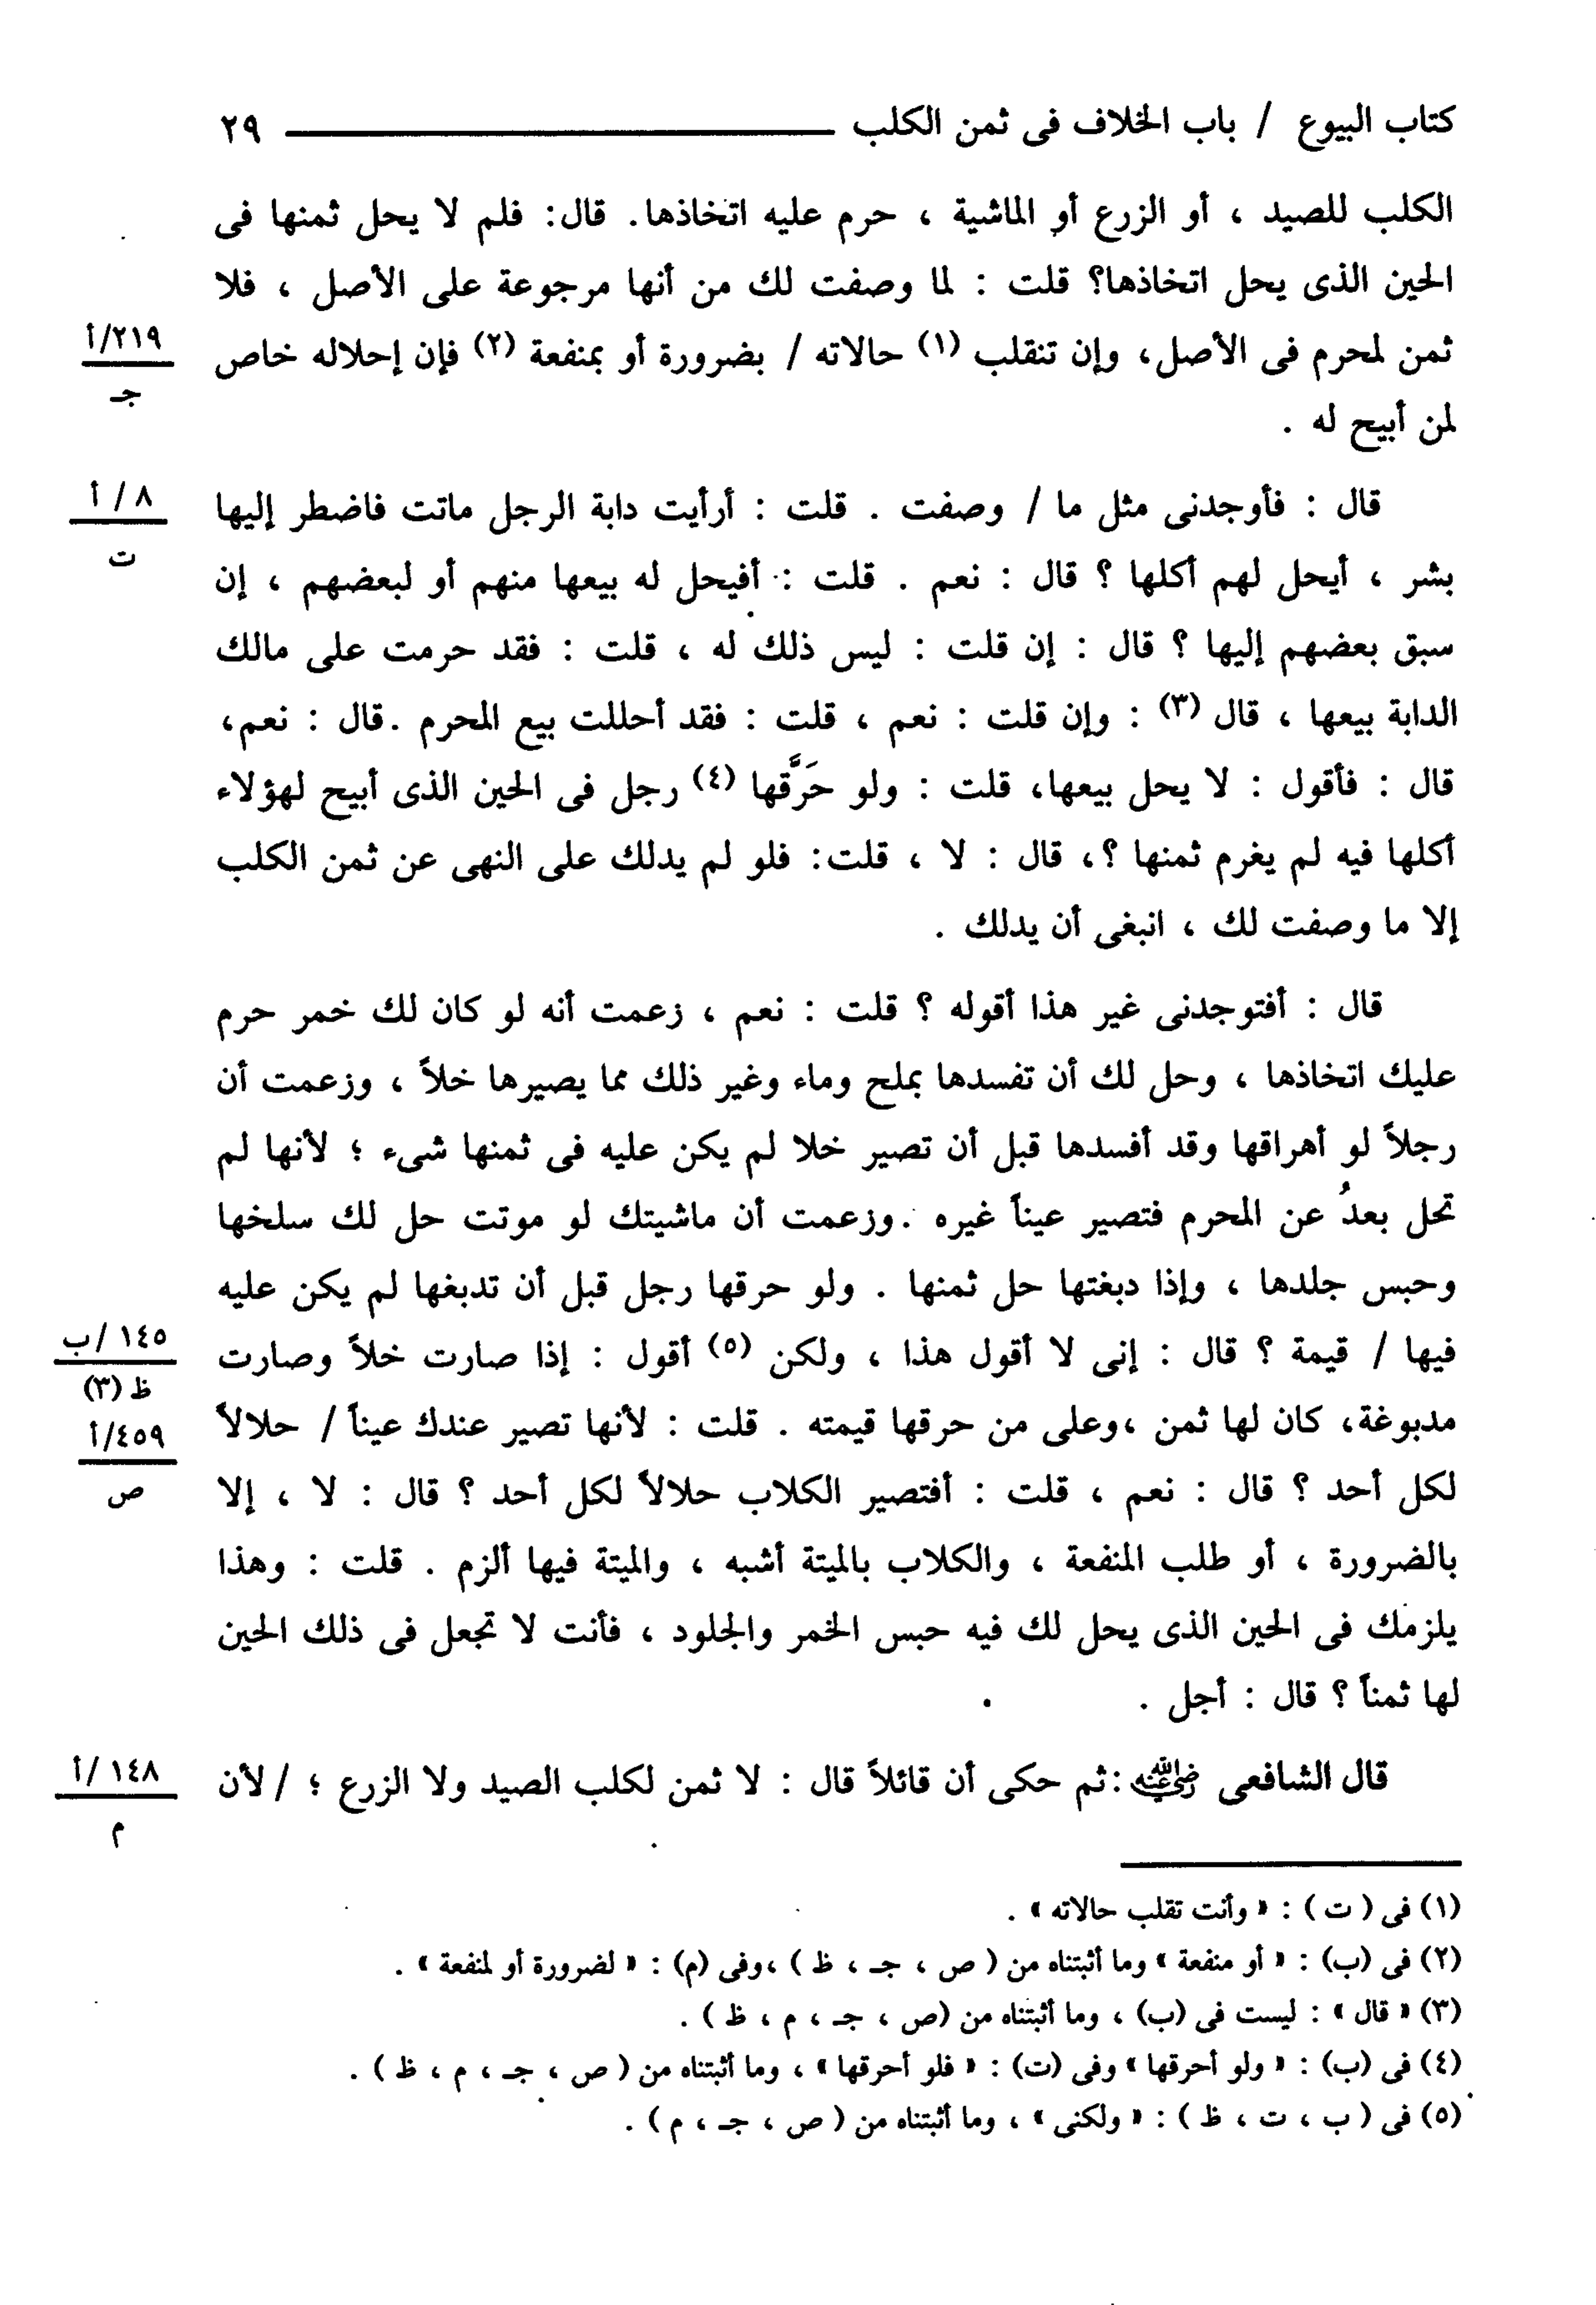 كتاب البيوع / باب الخلاف فى ثمن الكلب ٢٩
الكلب للصيد ، أو الزرع أو الماشية ، حرم عليه اتخاذها. قال: فلم لا يحل ثمنها فى
الحين الذى يحل اتخاذها؟ قلت : لما وصفت لك من أنها مرجوعة على الأصل ، فلا
ثمن لمحرم فى الأصل، وإن تنقلب (١) حالاته / بضرورة أو بمنفعة (٢) فإن إحلاله خاص
٢١٩/أ
جـ
لمن أبيح له .
قال : فأوجدنى مثل ما / وصفت . قلت : أرأيت دابة الرجل ماتت فاضطر إليها
٨ / أ
ت
بشر ، أيحل لهم أكلها ؟ قال : نعم . قلت : أفيحل له بيعها منهم أو لبعضهم ، إن
سبق بعضهم إليها ؟ قال : إن قلت : ليس ذلك له ، قلت : فقد حرمت على مالك
الدابة بيعها ، قال (٣) : وإن قلت : نعم ، قلت : فقد أحللت بيع المحرم .قال : نعم،
قال : فأقول : لا يحل بيعها، قلت : ولو حَرَّقها (٤) رجل فى الحين الذى أبيح لهؤلاء
أكلها فيه لم يغرم ثمنها ؟، قال : لا ، قلت: فلو لم يدلك على النهى عن ثمن الكلب
إلا ما وصفت لك ، انبغى أن يدلك .
قال : أفتوجدنى غير هذا أقوله ؟ قلت : نعم ، زعمت أنه لو كان لك خمر حرم
عليك اتخاذها ، وحل لك أن تفسدها بملح وماء وغير ذلك مما يصيرها خلاً ، وزعمت أن
رجلاً لو أهراقها وقد أفسدها قبل أن تصير خلا لم يكن عليه فى ثمنها شىء ؛ لأنها لم
تحل بعدُ عن المحرم فتصير عيناً غيره .وزعمت أن ماشيتك لو موتت حل لك سلخها
وحبس جلدها ، وإذا دبغتها حل ثمنها . ولو حرقها رجل قبل أن تدبغها لم يكن عليه
فيها / قيمة ؟ قال : إنى لا أقول هذا ، ولكن (٥) أقول : إذا صارت خلاً وصارت
١٤٥ /ب
ظ (٣)
مدبوغة، كان لها ثمن ،وعلى من حرقها قيمته . قلت : لأنها تصير عندك عيناً / حلالاً
٤٥٩/أ
ص
لكل أحد ؟ قال : نعم ، قلت : أفتصير الكلاب حلالاً لكل أحد ؟ قال : لا ، إلا
بالضرورة ، أو طلب المنفعة ، والكلاب بالميتة أشبه ، والميتة فيها ألزم . قلت : وهذا
يلزمك فى الحين الذى يحل لك فيه حبس الخمر والجلود ، فأنت لا تجعل فى ذلك الحين
لها ثمناً ؟ قال : أجل .
قال الشافعى رضي الله عنه :ثم حكى أن قائلاً قال : لا ثمن لكلب الصيد ولا الزرع ؛ / لأن
١٤٨ /أ
م
(١) فى ( ت ) : « وأنت تقلب حالاته » .
(٢) فى (ب) : « أو منفعة » وما أثبتناه من ( ص ، جـ ، ظ ) ،وفى (م) : « لضرورة أو لمنفعة » .
(٣) « قال » : ليست فى (ب) ، وما أثبتناه من (ص ، جـ ، م ، ظ ) .
(٤) فى (ب) : « ولو أحرقها » وفى (ت) : « فلو أحرقها » ، وما أثبتناه من ( ص ، جـ ، م ، ظ ) .
(٥) فى ( ب ، ت ، ظ ) : « ولكنى » ، وما أثبتناه من ( ص ، جـ ، م ) .